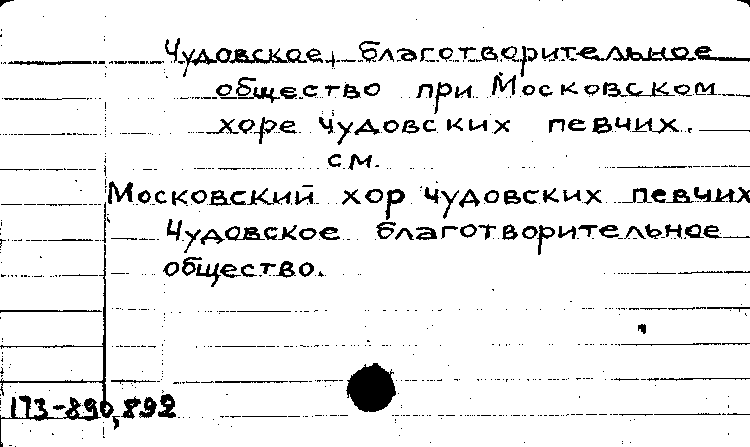 Чудовское благотворительное
общество при Московском
хоре чудовских певчих.
см.
Московский хор чудовских певчих
Чудовское благотворительное
общество.
173-890,892